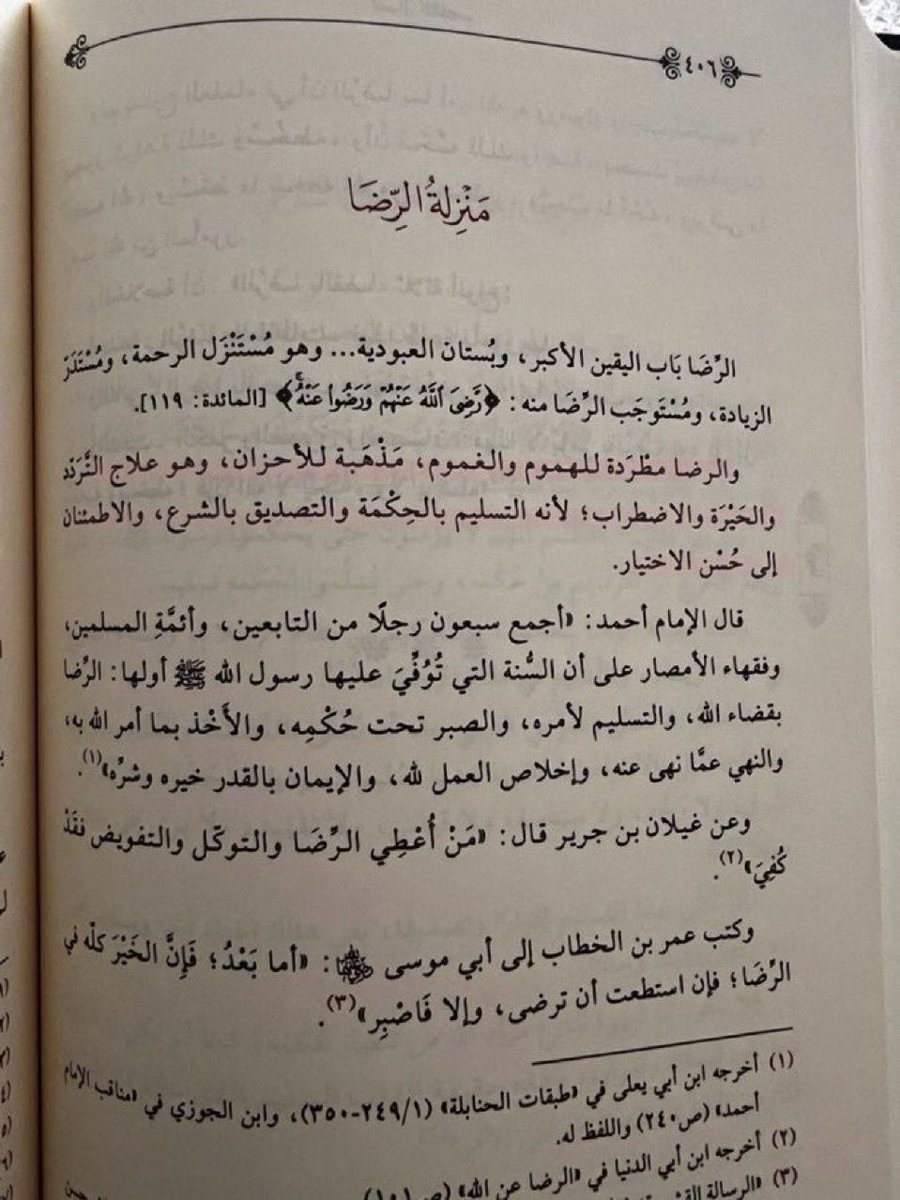 ٤٠٦
مَنْزِلةُ الرِّضَا
الرِّضَا بَاب اليقين الأكبر، وبُستان العبودية... وهو مُسْتَنْزَل الرحمة، ومُسْتَدَرّ
الزيادة، ومُسْتَوجَب الرِّضَا منه: ﴿رَّضِيَ ٱللَّهُ عَنۡهُمۡ وَرَضُواْ عَنۡهُۚ﴾ [المائدة: ١١٩].
والرضا مطْرَدة للهموم والغموم، مَذْهَبة للأحزان، وهو علاج التَّرَدّد
والحَيْرَة والاضطراب؛ لأنه التسليم بالحِكْمَة والتصديق بالشرع، والاطمئنان
إلى حُسْن الاختيار.
قال الإمام أحمد: «أجمع سبعون رجلًا من التابعين، وأئمَّةِ المسلمين،
وفقهاء الأمصار على أن السُّنة التي تُوُفِّيَ عليها رسول الله ﷺ أولها: الرِّضا
بقضاء الله، والتسليم لأمره، والصبر تحت حُكْمِه، والأَخْذ بما أمر الله به،
والنهي عمَّا نهى عنه، وإخلاص العمل لله، والإيمان بالقدر خيره وشرِّه»(١).
وعن غيلان بن جرير قال: «مَنْ أُعْطِي الرِّضَا والتوكّل والتفويض فقَدْ
كُفِيَ»(٢).
وكتب عمر بن الخطاب إلى أبي موسى: «أما بَعْدُ؛ فَإِنَّ الخَيْرَ كلّه في
الرِّضَا؛ فإن استطعت أن ترضى، وإلا فَاصْبِر»(٣).
(١) أخرجه ابن أبي يعلى في «طبقات الحنابلة» (٢٤٩/١-٣٥٠)، وابن الجوزي في «مناقب الإمام
أحمد» (ص٢٤٠) واللفظ له.
(٢) أخرجه ابن أبي الدنيا في «الرضا عن الله» (ص١٠١)
(٣) «الرسالة